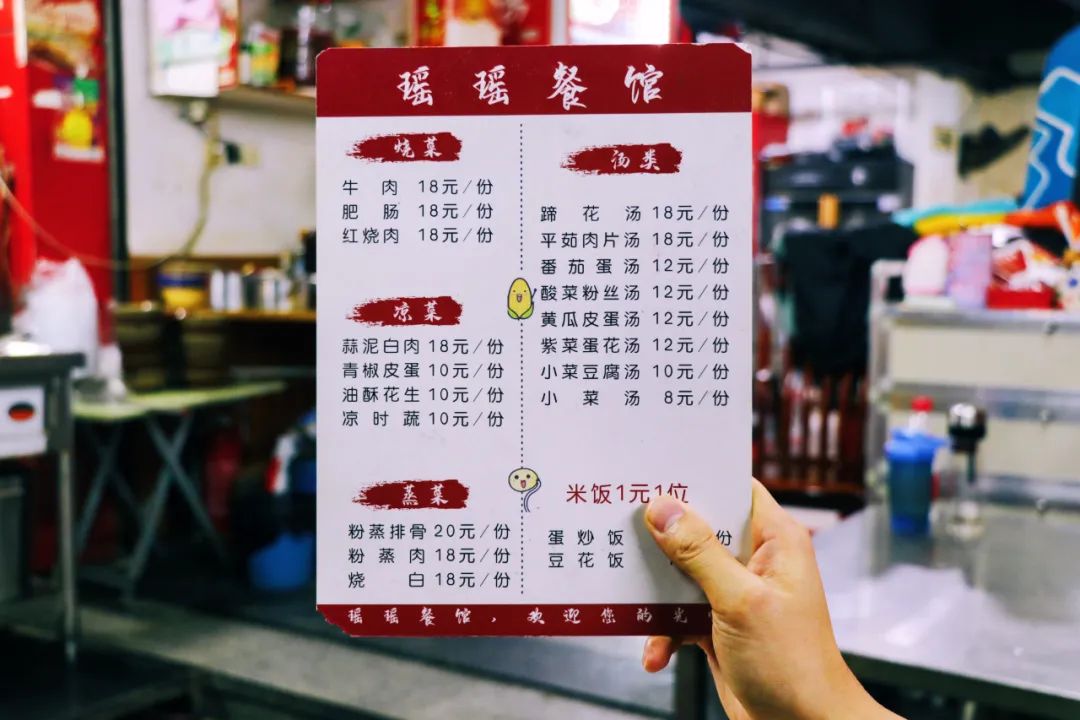 瑶瑶餐馆
烧菜
牛肉 18元/份
肥肠 18元/份
红烧肉 18元/份
凉菜
蒜泥白肉 18元/份
青椒皮蛋 10元/份
油酥花生 10元/份
凉时蔬 10元/份
蒸菜
粉蒸排骨 20元/份
粉蒸肉 18元/份
烧白 18元/份
汤类
蹄花汤 18元/份
平茹肉片汤 18元/份
番茄蛋汤 12元/份
酸菜粉丝汤 12元/份
黄瓜皮蛋汤 12元/份
紫菜蛋花汤 12元/份
小菜豆腐汤 10元/份
小菜汤 8元/份
米饭1元1位
蛋炒饭 份
豆花饭
瑶瑶餐馆,欢迎您的光